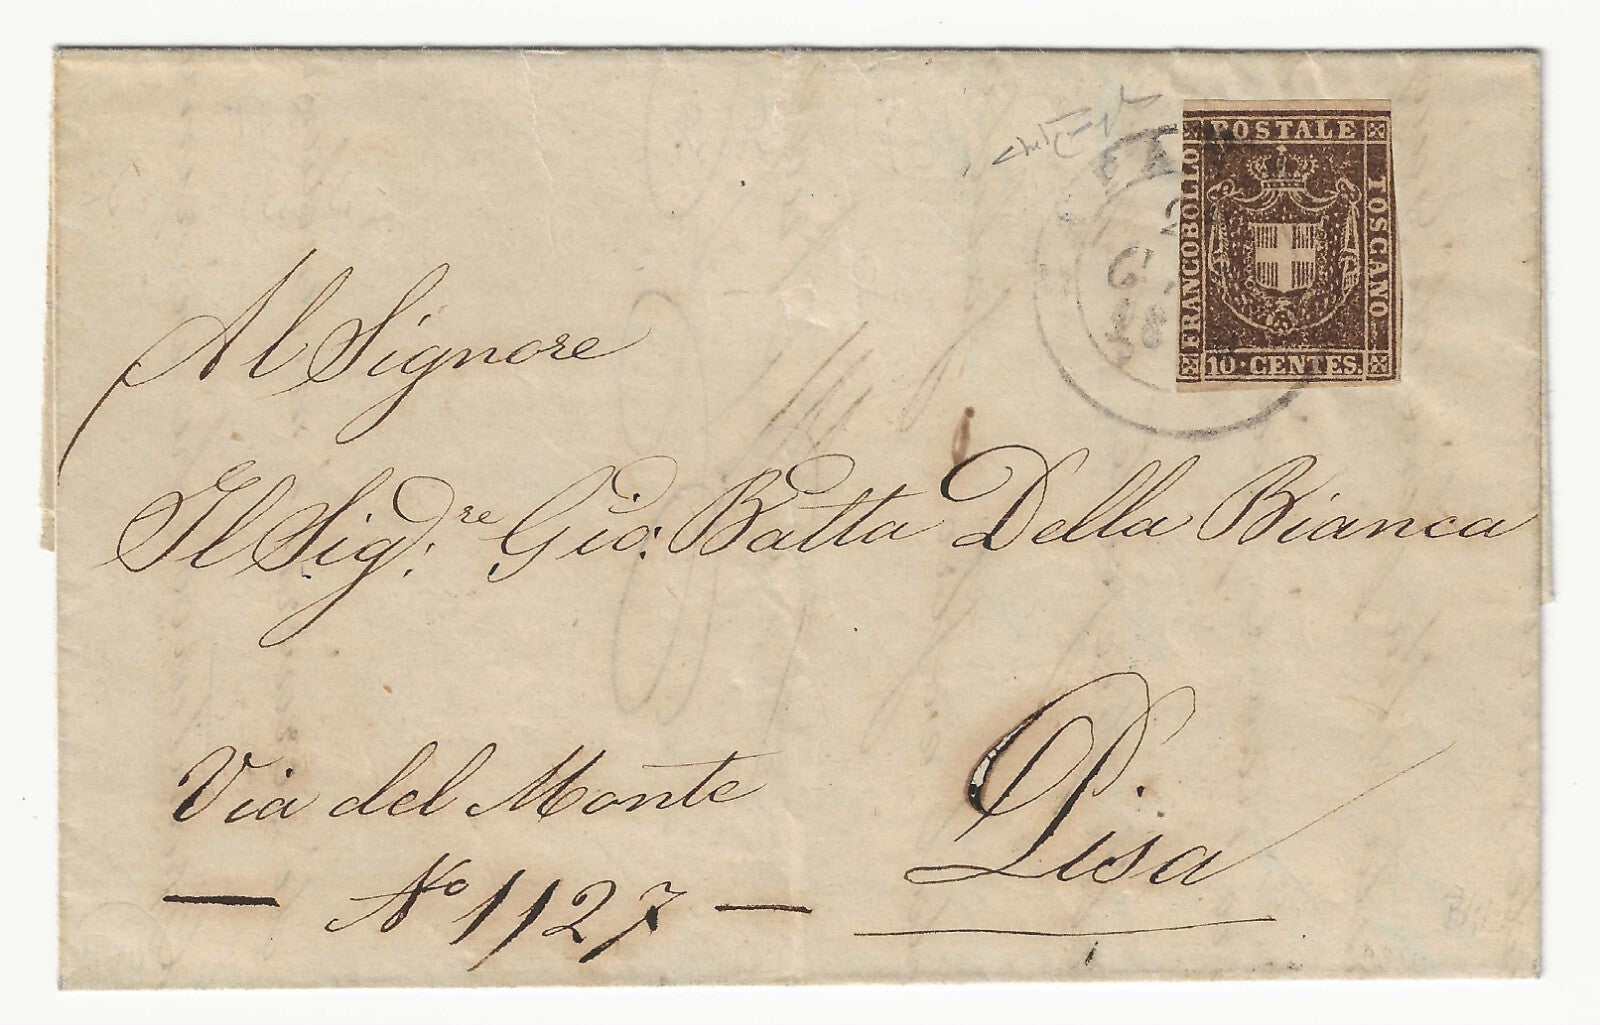 POSTALE
FRANCOBOLLO
TOSCANO
10 · CENTES.
Al Signore
Il Sig:re Gio: Batta Della Bianca
Via del Monte
— No 1127 —
Pisa